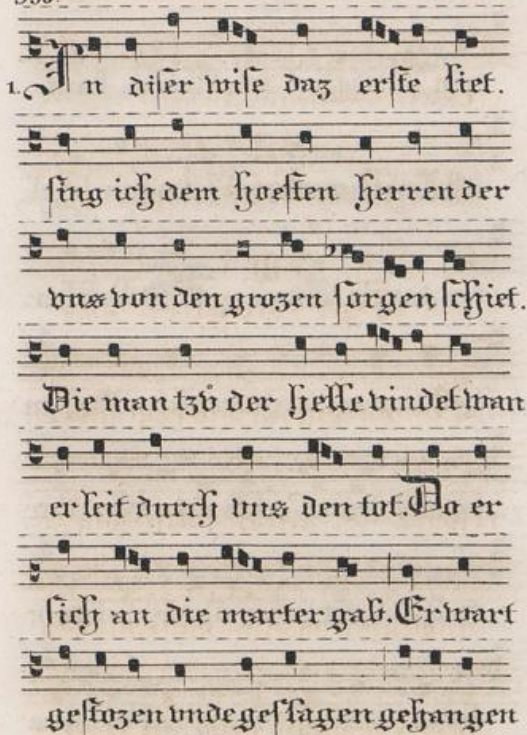 1. In diser wise daz erste liet.
sing ich dem hoesten herren der
vns von den grozen sorgen schiet.
Die man tzv̊ der helle vindet wan
er leit durch vns den tot. Do er
sich an die marter gab. Er wart
gestozen vnde geslagen gehangen